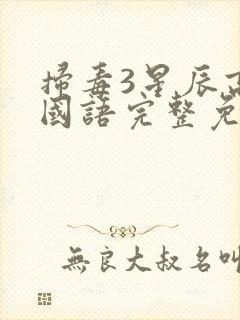 掃毒3星辰
國語完整免
無良大叔名叫